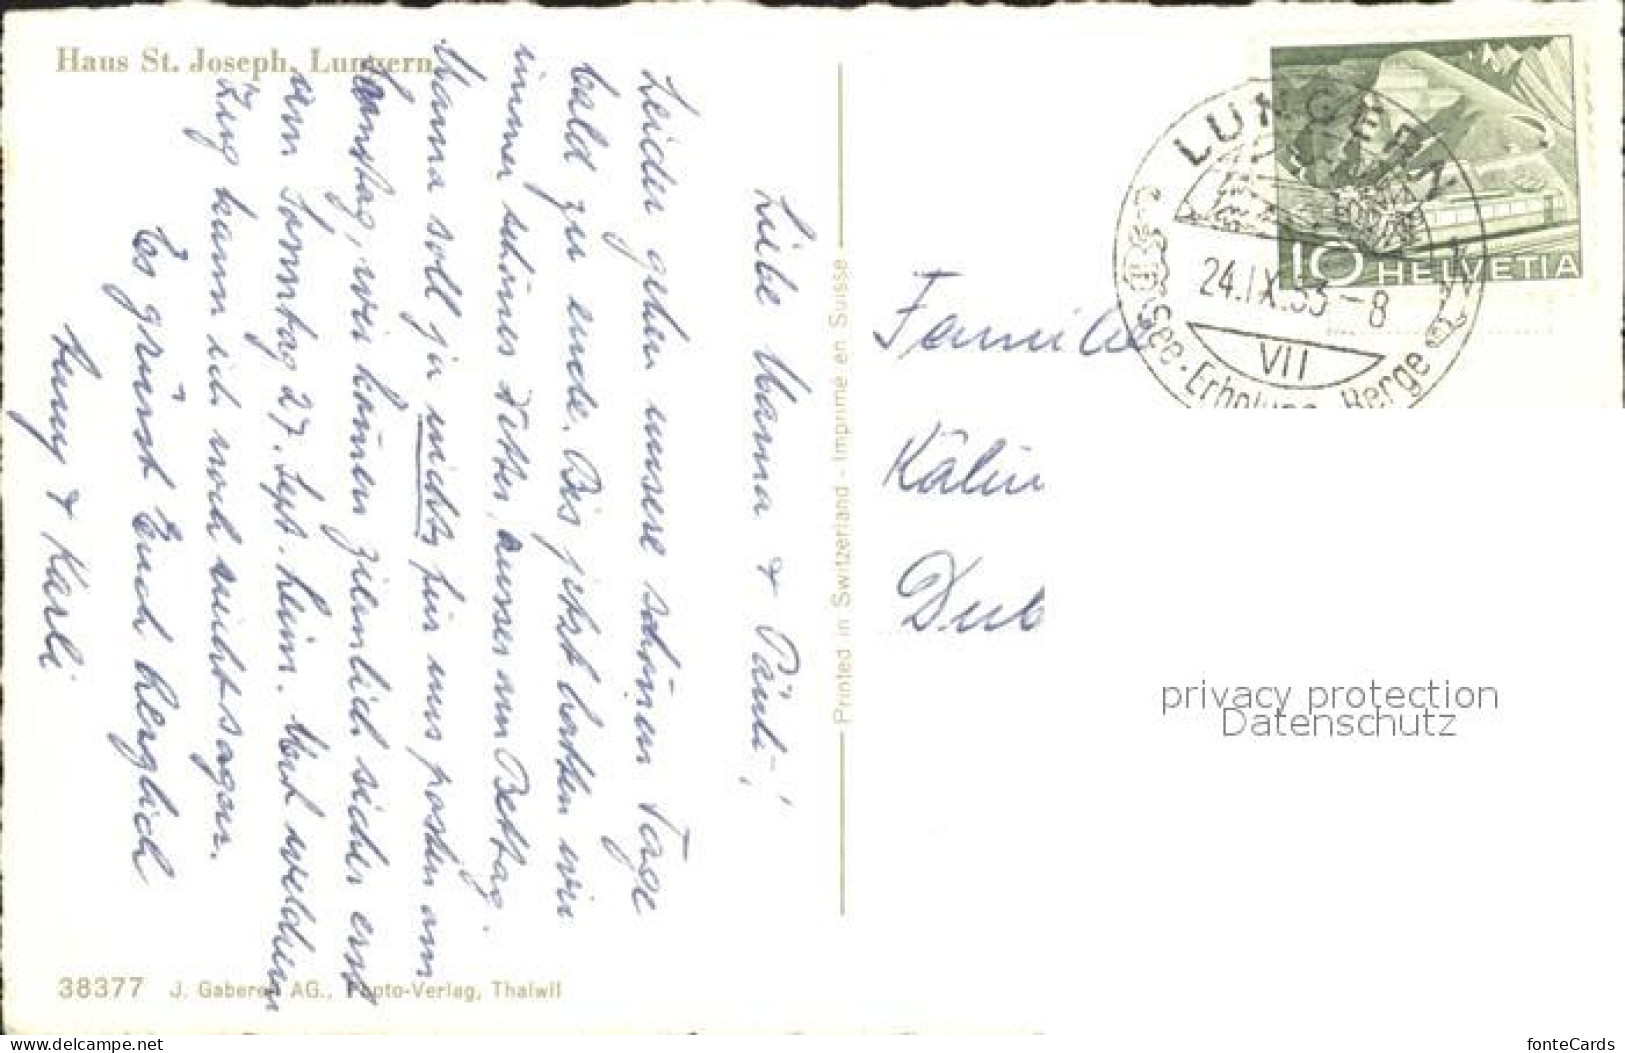 Haus St. Joseph, Lungern
Liebe Mama & Päuli!
Leider gehen unsere schönen Tage
bald zu ende. Bis jetzt hatten wir
immer schönes Wetter, ausser am Bettag.
Mama soll ja nichts für uns posten am
Samstag, wir können ziemlich sicher erst
am Sonntag 27. Sept. heim. Mit welchem
Zug kann ich noch nicht sagen.
Es grüsst Euch herzlich
& Karli
38377 J. Gaberell AG., Photo-Verlag, Thalwil
Printed in Switzerland - Imprimé en Suisse
LUNGERN
24.IX.53-8
VII
See-Erholung-Berge
10 HELVETIA
Familie
Kälin
Dub
privacy protection
Datenschutz
www.delcampe.net
fonteCards